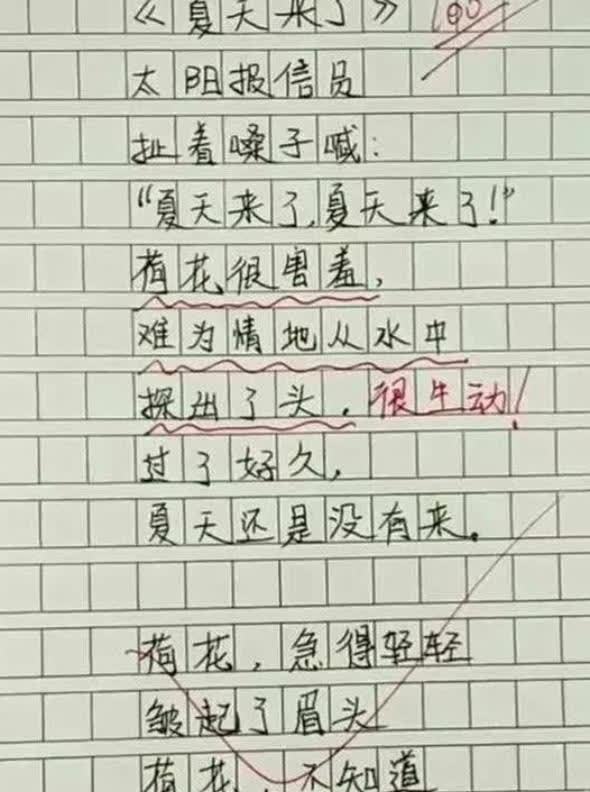 《夏天来了》 100
太阳报信员
扯着嗓子喊:
“夏天来了,夏天来了!”
荷花很害羞,
难为情地从水中
探出了头. 很生动!
过了好久,
夏天还是没有来。
荷花,急得轻轻
皱起了眉头
荷花,不知道